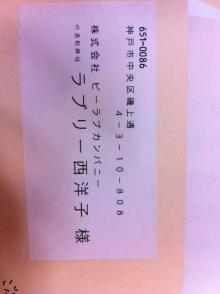 651-0086
神戸市中央区磯上通
4-3-10-808
株式会社 ビーラブカンパニー
代表取締役
ラブリー西洋子 様